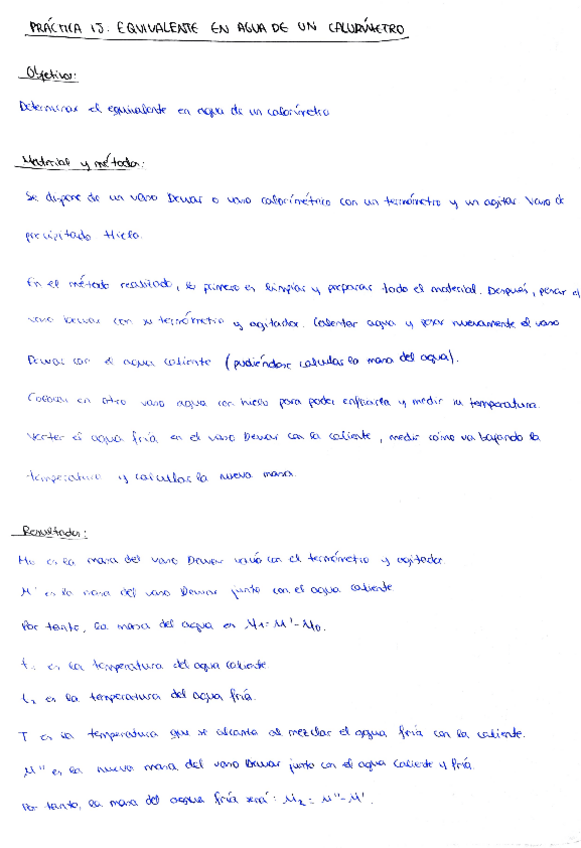 PRÁCTICA 15. EQUIVALENTE EN AGUA DE UN CALORÍMETRO
Objetivo:
Determinar el equivalente en agua de un calorímetro
Material y método:
Se dispone de un vaso Dewar o vaso calorimétrico con un termómetro y un agitar Vaso de
precipitado Hielo.
En el método realizado, lo primero es limpiar y preparar todo el material. Después, pesar el
vaso Dewar con su termómetro y agitador. Calentar agua y pesar nuevamente el vaso
Dewar con el agua caliente (pudiéndose calcular la masa del agua).
Colocar en otro vaso agua con hielo para poder enfriarla y medir su temperatura.
Verter el agua fría en el vaso Dewar con la caliente, medir cómo va bajando la
temperatura y calcular la nueva masa.
Resultados:
M₀ es la masa del vaso Dewar vacío con el termómetro y agitador.
M' es la masa del vaso Dewar junto con el agua caliente
Por tanto, la masa del agua es M₁ = M' - M₀.
t₁ es la temperatura del agua caliente
t₂ es la temperatura del agua fría.
T es la temperatura que se alcanza al mezclar el agua fría con la caliente.
M" es la nueva masa del vaso Dewar junto con el agua caliente y fría
Por tanto, la masa del agua fría será: M₂ = M" - M'.